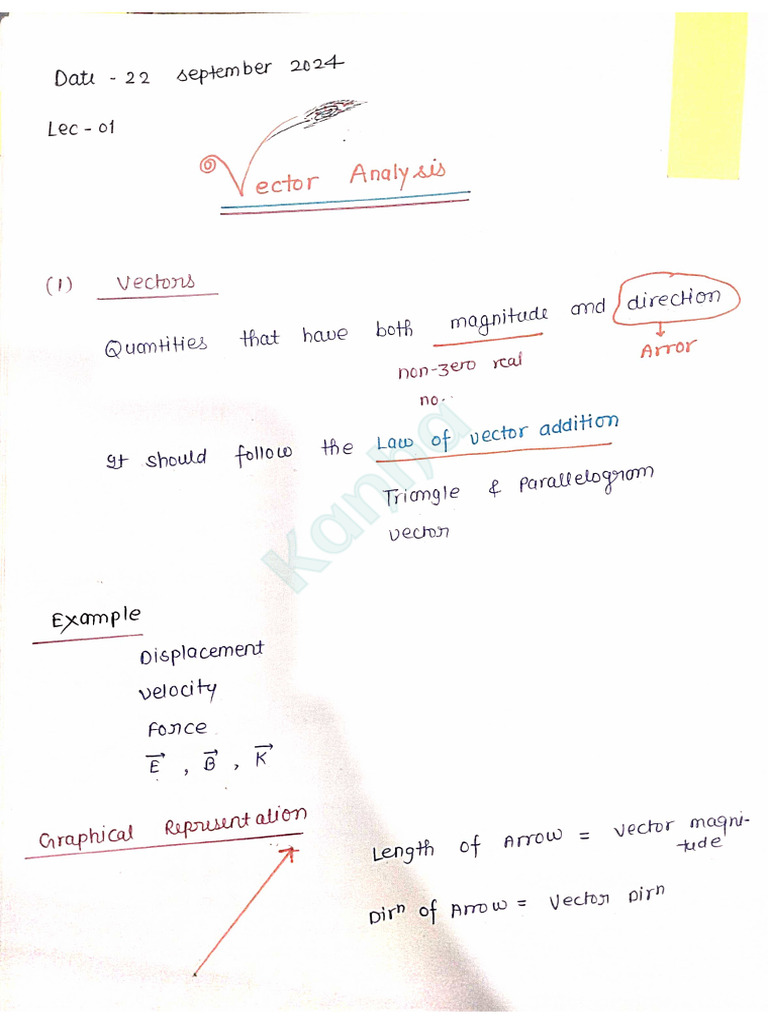 Date - 22 September 2024
Lec - 01
Vector Analysis
(1) Vectors
Quantities that have both magnitude and direction
non-zero real
no.
Arror
It should follow the Law of vector addition
Triangle & Parallelogram
vector
Kanha
Example
Displacement
velocity
Force
E⃗ , B⃗ , K⃗
Graphical Representation
Length of Arrow = vector magni-
tude
Dirⁿ of Arrow = Vector Dirⁿ